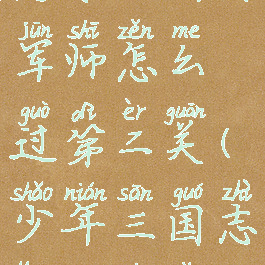 jūn shī zěn me
军师怎么
guò dì èr guān
过第二关(
shǎo nián sān guó zhì
少年三国志